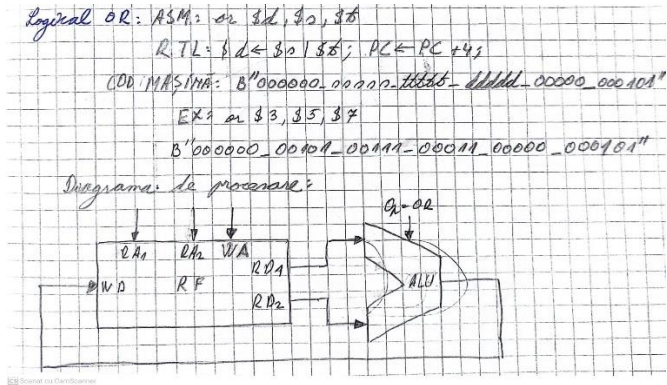 Logical OR: ASM: or $d, $s, $t
RTL: $d ← $s | $t; PC ← PC + 4;
COD MAȘINĂ: B"000000_sssss_ttttt_ddddd_00000_000101"
EX: or $3, $5, $7
B"000000_00101_00111_00011_00000_000101"
Diagrama de procesare:
Op=OR
RA1 RA2 WA
RD1
WD RF ALU
RD2
CS Scanat cu CamScanner